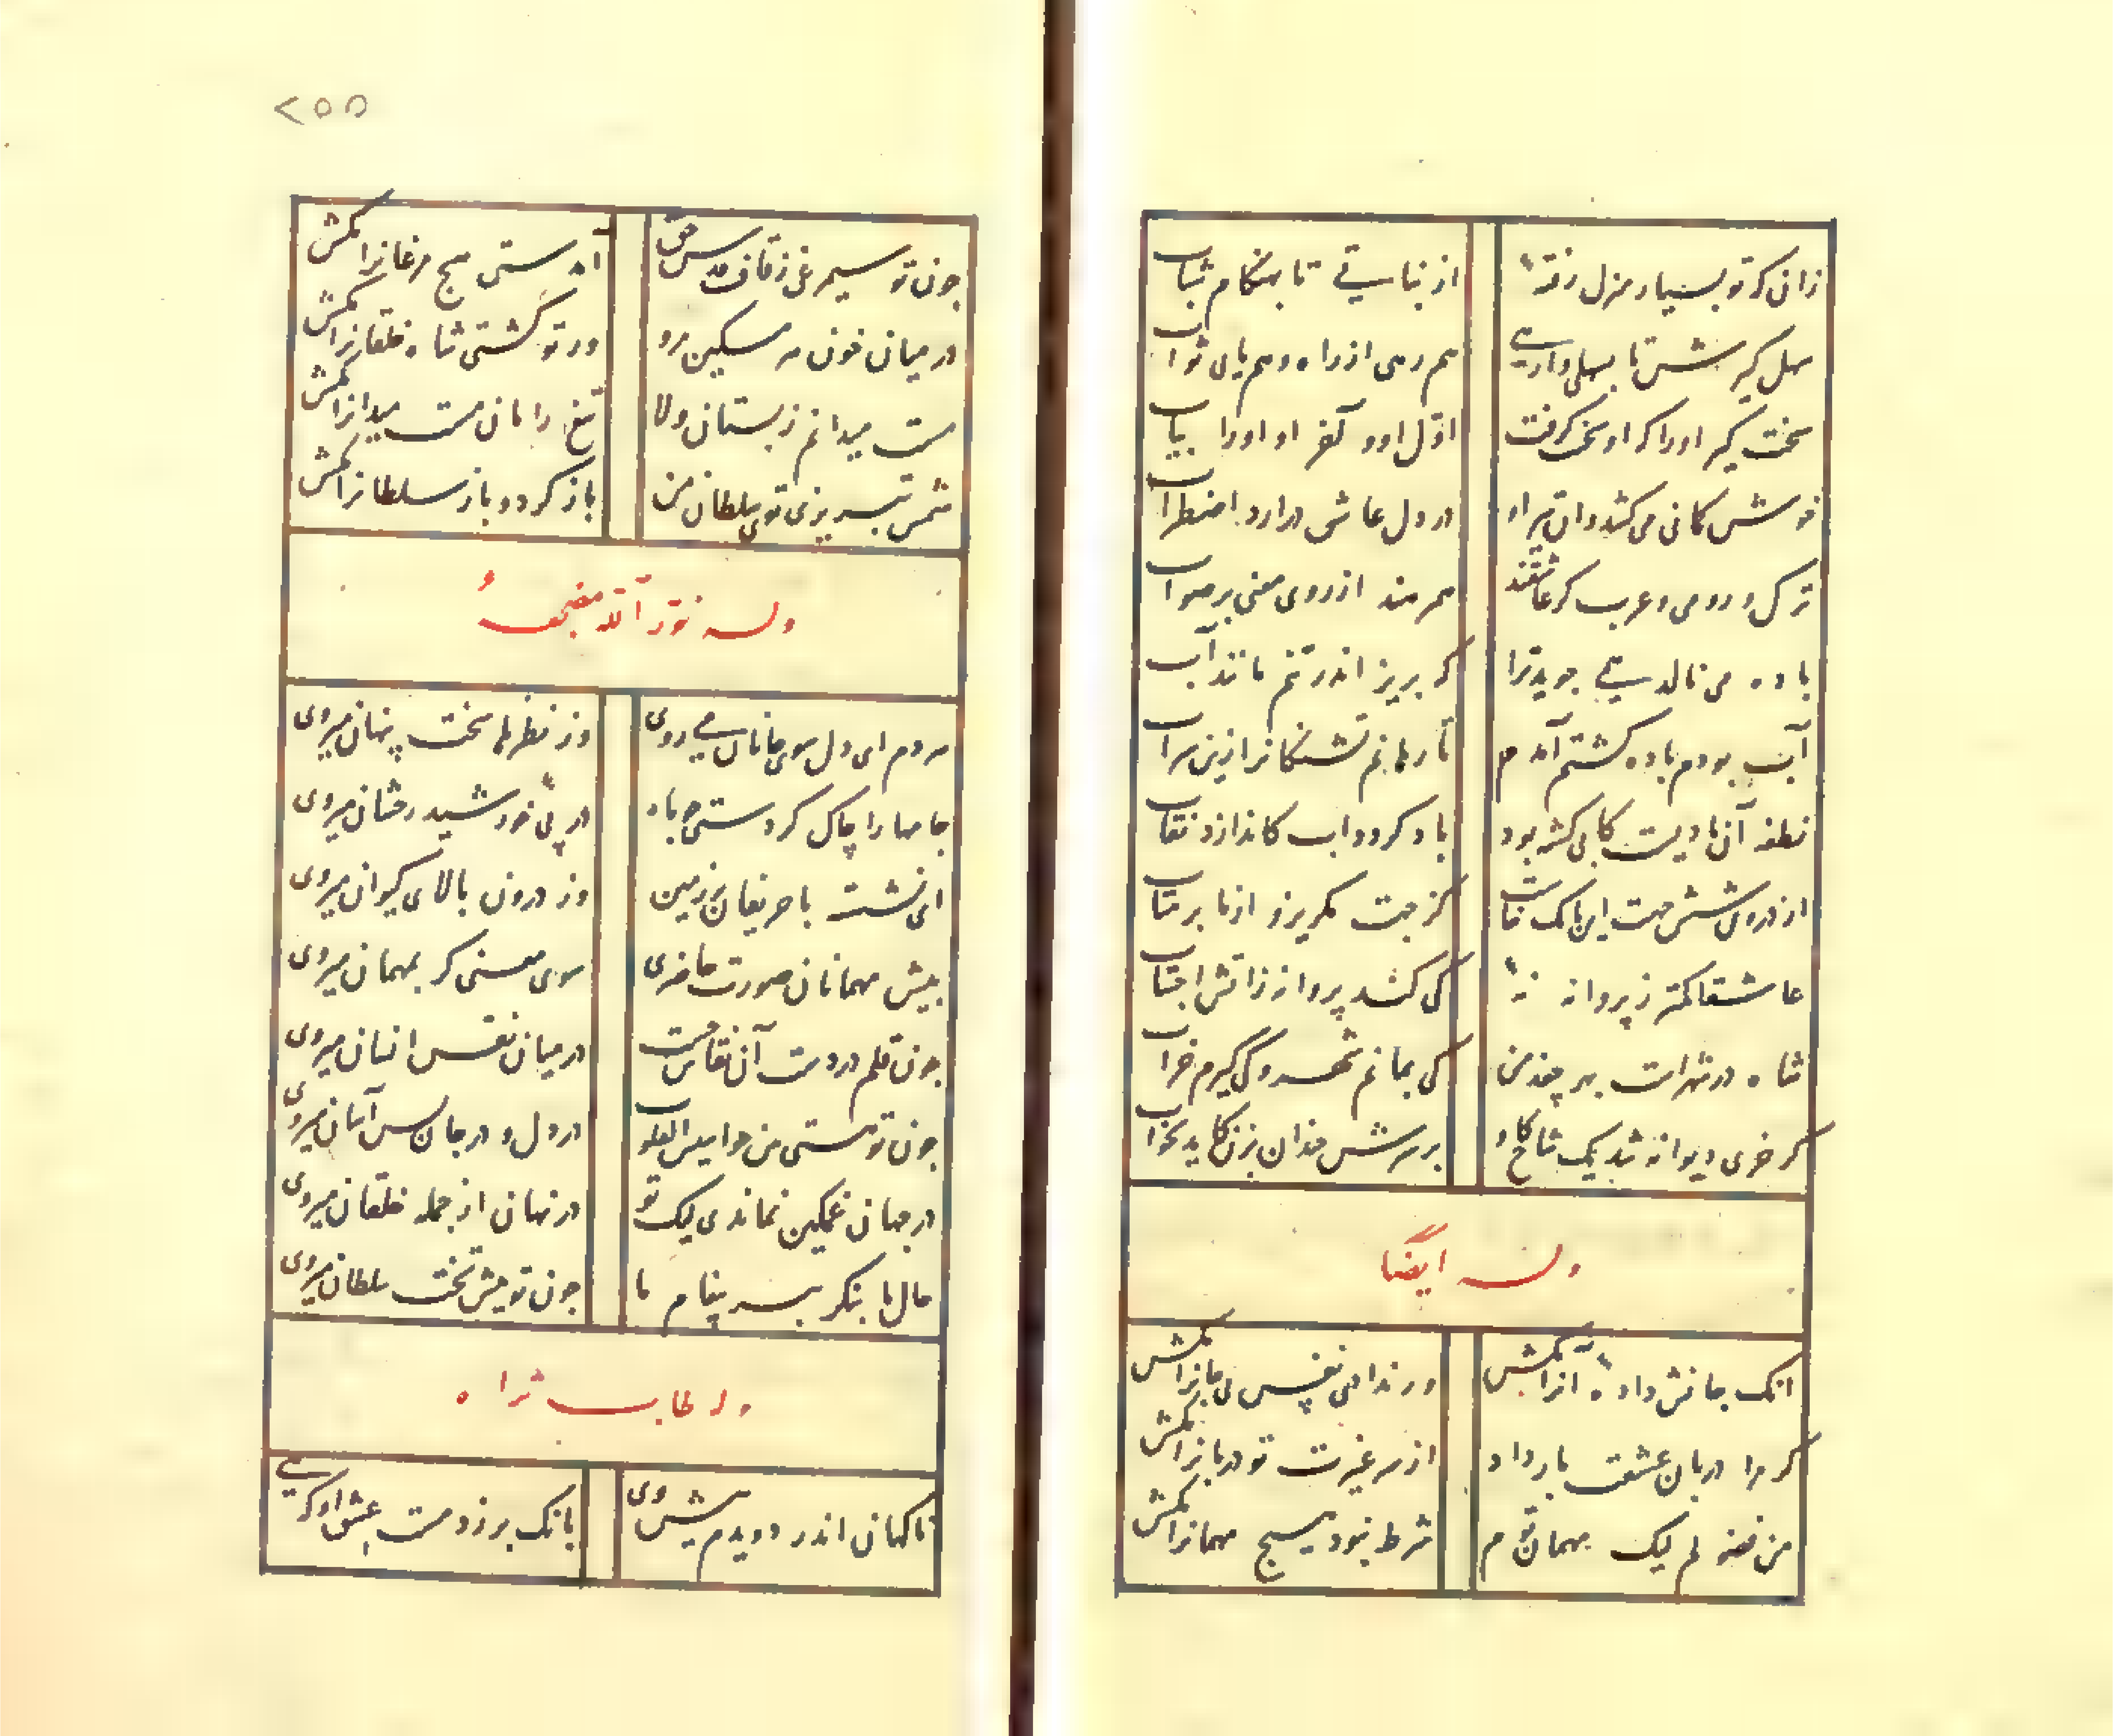 زان که تو بسیار منزل رفته از نباتی تا بهنگام شباب
سهل گیرش تا بسهلی وارهی هم رهی از راه و هم یابی ثواب
سخت گیر اورا که او سختت گرفت اول او و آخر او اورا بیاب
خوش کمانی می کشد وان تیر او در دل عاشق دارد اضطراب
ترک و رومی و عرب گر عاشقند همزبانند از روی معنی بر صواب
باده می نالد همی جوید ترا که بریز اندر تنم مانند آب
آب بودم باده گشتم آمدم تا رهانم تشنگانرا ازین سراب
نطفه آن بادیست کابی گشته بود باد گردد آب کاندازد نقاب
از درون شش جهت این بانگ خاست کز جهت بگریز از ما بر متاب
عاشقا کمتر ز پروانه نه کی کند پروانه زاتش اجتناب
شاه در شهرات بهر جغد من کی بمانم شهر و کی گیرم خراب
گر خری دیوانه شد یک شاخ گاو بر سرش چندان بزن کاید بخواب
وله ایضا
انک جانش داده آنرا مکش ور ندادی نفس بی جانرا مکش
گر مرا دربان عشقت بار داد از سر غیرت تو دربانرا مکش
من فضولم لیک مهمان توم شرط نبود هیچ مهمانرا مکش
۲۵۵
جون تو سیمرغی ز قاف قدس حق آمدستی هیچ مرغانرا مکش
در میان خون هر مسکین مرو ور تو گشتی شاه خلقانرا مکش
مست میدانم ز بستان ولا تیغ را مان مست میدانرا مکش
شمس تبریزی توی سلطان من باز گردد باز سلطانرا مکش
وله نور الله مضجعه
هر دم ای دل سوی جانان می روی وز نظرها سخت پنهان میروی
جامها را چاک کردستی چو ماه در پی خورشید رخشان میروی
ای نشسته با حریفان بر زمین وز درون بالای کیوان میروی
پیش مهمانان صورت حاضری سوی معنی گر بمهمان میروی
جون قلم در دست آن نقاش مست در میان نقس انسان میروی
در دل و در جان میروی
در جهان غمگین نماندی لیک تو در نهان از جمله خلقان میروی
حال ما بنگر ببر پیغام ما جون تو پیش تخت سلطان میروی
وله طاب ثراه
ناگهان اندر دویدم پیش وی بانگ برزد مست عشق او که هی